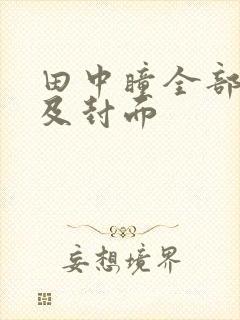 田中瞳全部
及封面
妄想境界